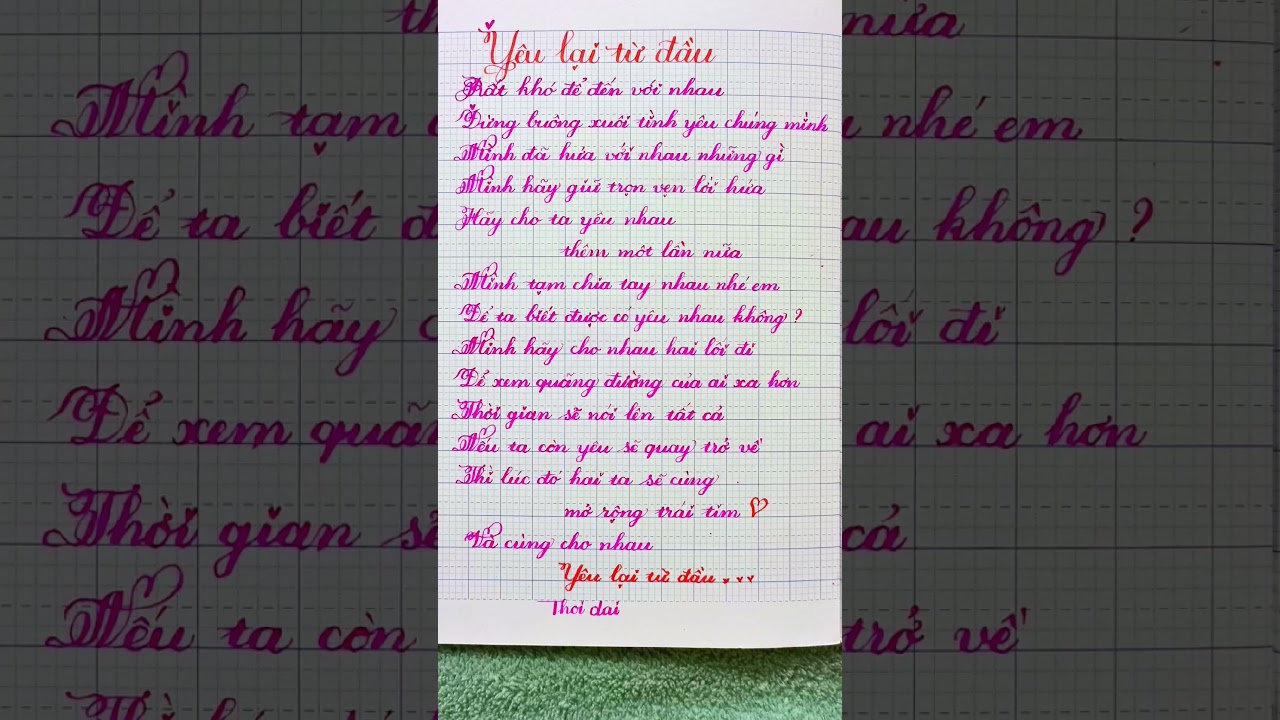 Yêu lại từ đầu
Rất khó để đến với nhau
Đừng buông xuôi tình yêu chúng mình
Mình đã hứa với nhau những gì
Mình hãy giữ trọn vẹn lời hứa
Hãy cho ta yêu nhau
thêm một lần nữa
Mình tạm chia tay nhau nhé em
Để ta biết được có yêu nhau không ?
Mình hãy cho nhau hai lối đi
Để xem quãng đường của ai xa hơn
Thời gian sẽ nói lên tất cả
Nếu ta còn yêu sẽ quay trở về
Thì lúc đó hai ta sẽ cùng
mở rộng trái tim
Và cùng cho nhau
Yêu lại từ đầu . . .
Thoi dai